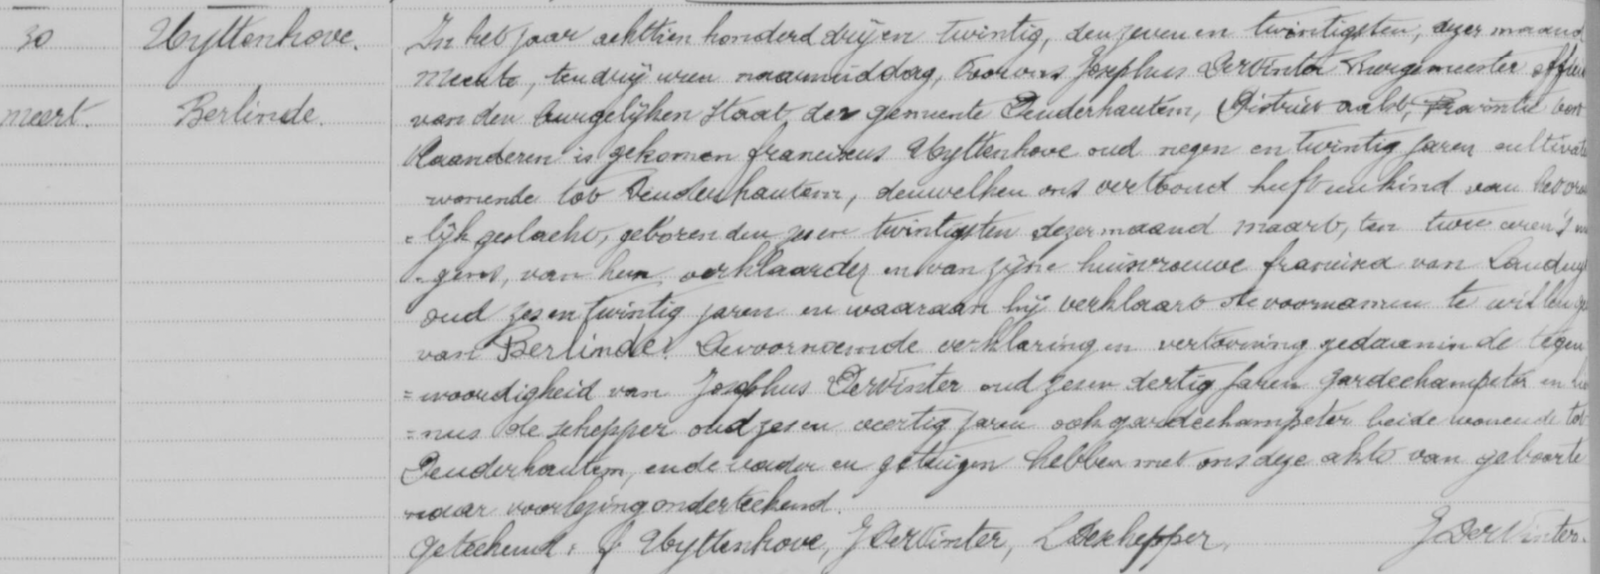 30 Uyttenhove. In het jaar achttien honderd drij en twintig, den zeven en twintigsten, dezer maand
meerte, ten drij uren naarmiddag, voor ons Josephus DeWinter Burgemeester officier
meert. Berlinde. van den burgelijken Staat, der gemeente Denderhautem, District aalst, Provintie oost
Vlaanderen is gekomen franciscus Uyttenhove oud negen en twintig jaren cultivate
wonende tot Denderhautem, denwelken ons vertoond heeft een kind van het vrou
=lijk geslacht, geboren den zes en twintigsten dezer maand maart, ten twee uren 's m
=gens, van hem verklaarder en van zijne huisvrouwe francisca van Landuyt
oud zes en twintig jaren en waaraan hij verklaart de voornamen te willen ge
van Berlinde. De voornoemde verklaring en vertooning gedaan in de tegen
=woordigheid van Josephus DeWinter oud zes en dertig jaren gardechampeter en
=nus de schepper oud zes en veertig jaren ook gardechampeter beide wonende tot
Denderhautem, ende vader en getuigen hebben met ons deze akte van geboorte
naar voorlezing onderteekend.
geteekend: f Uyttenhove, J DeWinter, L Deschepper, J DeWinter.